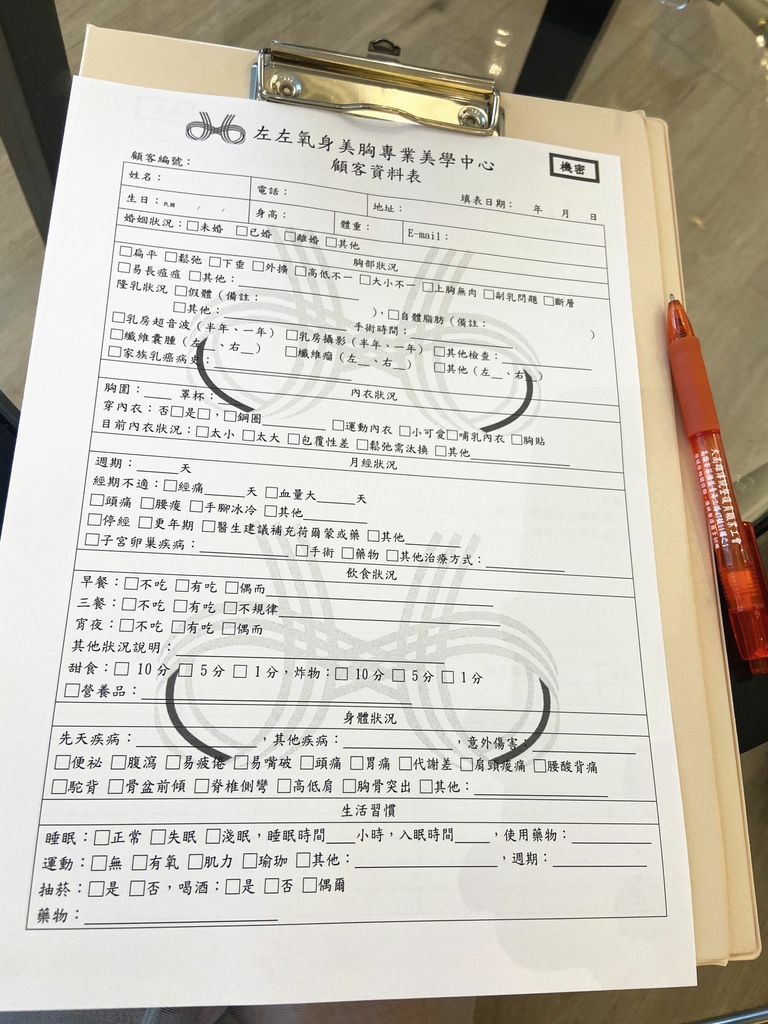 左左氧身美胸專業美學中心
顧客資料表
機密
顧客編號：
填表日期： 年 月 日
姓名： 電話： 地址：
生日：民國 / / 身高： 體重： E-mail：
婚姻狀況：□未婚 □已婚 □離婚 □其他
胸部狀況
□扁平 □鬆弛 □下垂 □外擴 □高低不一 □大小不一 □上胸無肉 □副乳問題 □斷層
□易長痘痘 □其他：
隆乳狀況 □假體（備註： ），□自體脂肪（備註： ）
□其他： 手術時間：
□乳房超音波（半年、一年） □乳房攝影（半年、一年） □其他檢查：
□纖維囊腫（左__、右__） □纖維瘤（左__、右__） □其他（左__、右__）
□家族乳癌病史：
內衣狀況
胸圍：____ 罩杯：____
穿內衣：否□是□，□鋼圈 □運動內衣 □小可愛□哺乳內衣 □胸貼
目前內衣狀況：□太小 □太大 □包覆性差 □鬆弛需汰換 □其他
月經狀況
週期：____天
經期不適：□經痛____天 □血量大____天
□頭痛 □腰痠 □手腳冰冷 □其他
□停經 □更年期 □醫生建議補充荷爾蒙或藥 □其他
□子宮卵巢疾病：____ □手術 □藥物 □其他治療方式：
飲食狀況
早餐：□不吃 □有吃 □偶而
三餐：□不吃 □有吃 □不規律
宵夜：□不吃 □有吃 □偶而
其他狀況說明：
甜食：□ 10分 □ 5分 □ 1分，炸物：□ 10分 □ 5分 □ 1分
□營養品：
身體狀況
先天疾病：____，其他疾病：____，意外傷害：
□便祕 □腹瀉 □易疲倦 □易嘴破 □頭痛 □胃痛 □代謝差 □肩頸痠痛 □腰酸背痛
□駝背 □骨盆前傾 □脊椎側彎 □高低肩 □胸骨突出 □其他：
生活習慣
睡眠：□正常 □失眠 □淺眠，睡眠時間____小時，入眠時間____，使用藥物：
運動：□無 □有氧 □肌力 □瑜珈 □其他：____，週期：
抽菸：□是 □否，喝酒：□是 □否 □偶爾
藥物：